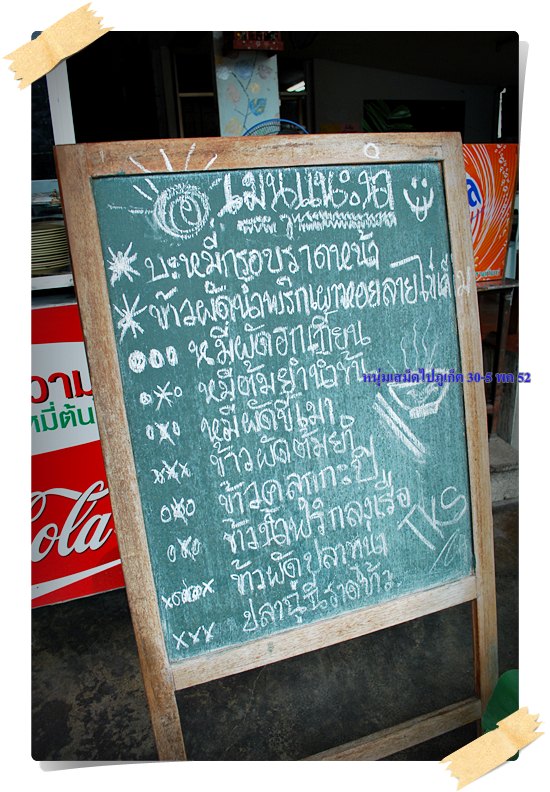 เมนูแนะนำ
บะหมี่กรอบราดหน้า
ข้าวผัดน้ำพริกเผาหอยลายไข่เค็ม
หมี่ผัดฮกเกี้ยน
หมี่ต้มยำน้ำข้น
หมี่ผัดขี้เมา
ข้าวผัดต้มยำ
ข้าวคลุกกะปิ
ข้าวน้ำพริกลงเรือ
ข้าวผัดปลาทูน่า
ราดข้าว
TKS
หนุ่มเสม็ดไปภูเก็ต 30-5 พค 52
วาม
หมี่ต้น
Cola